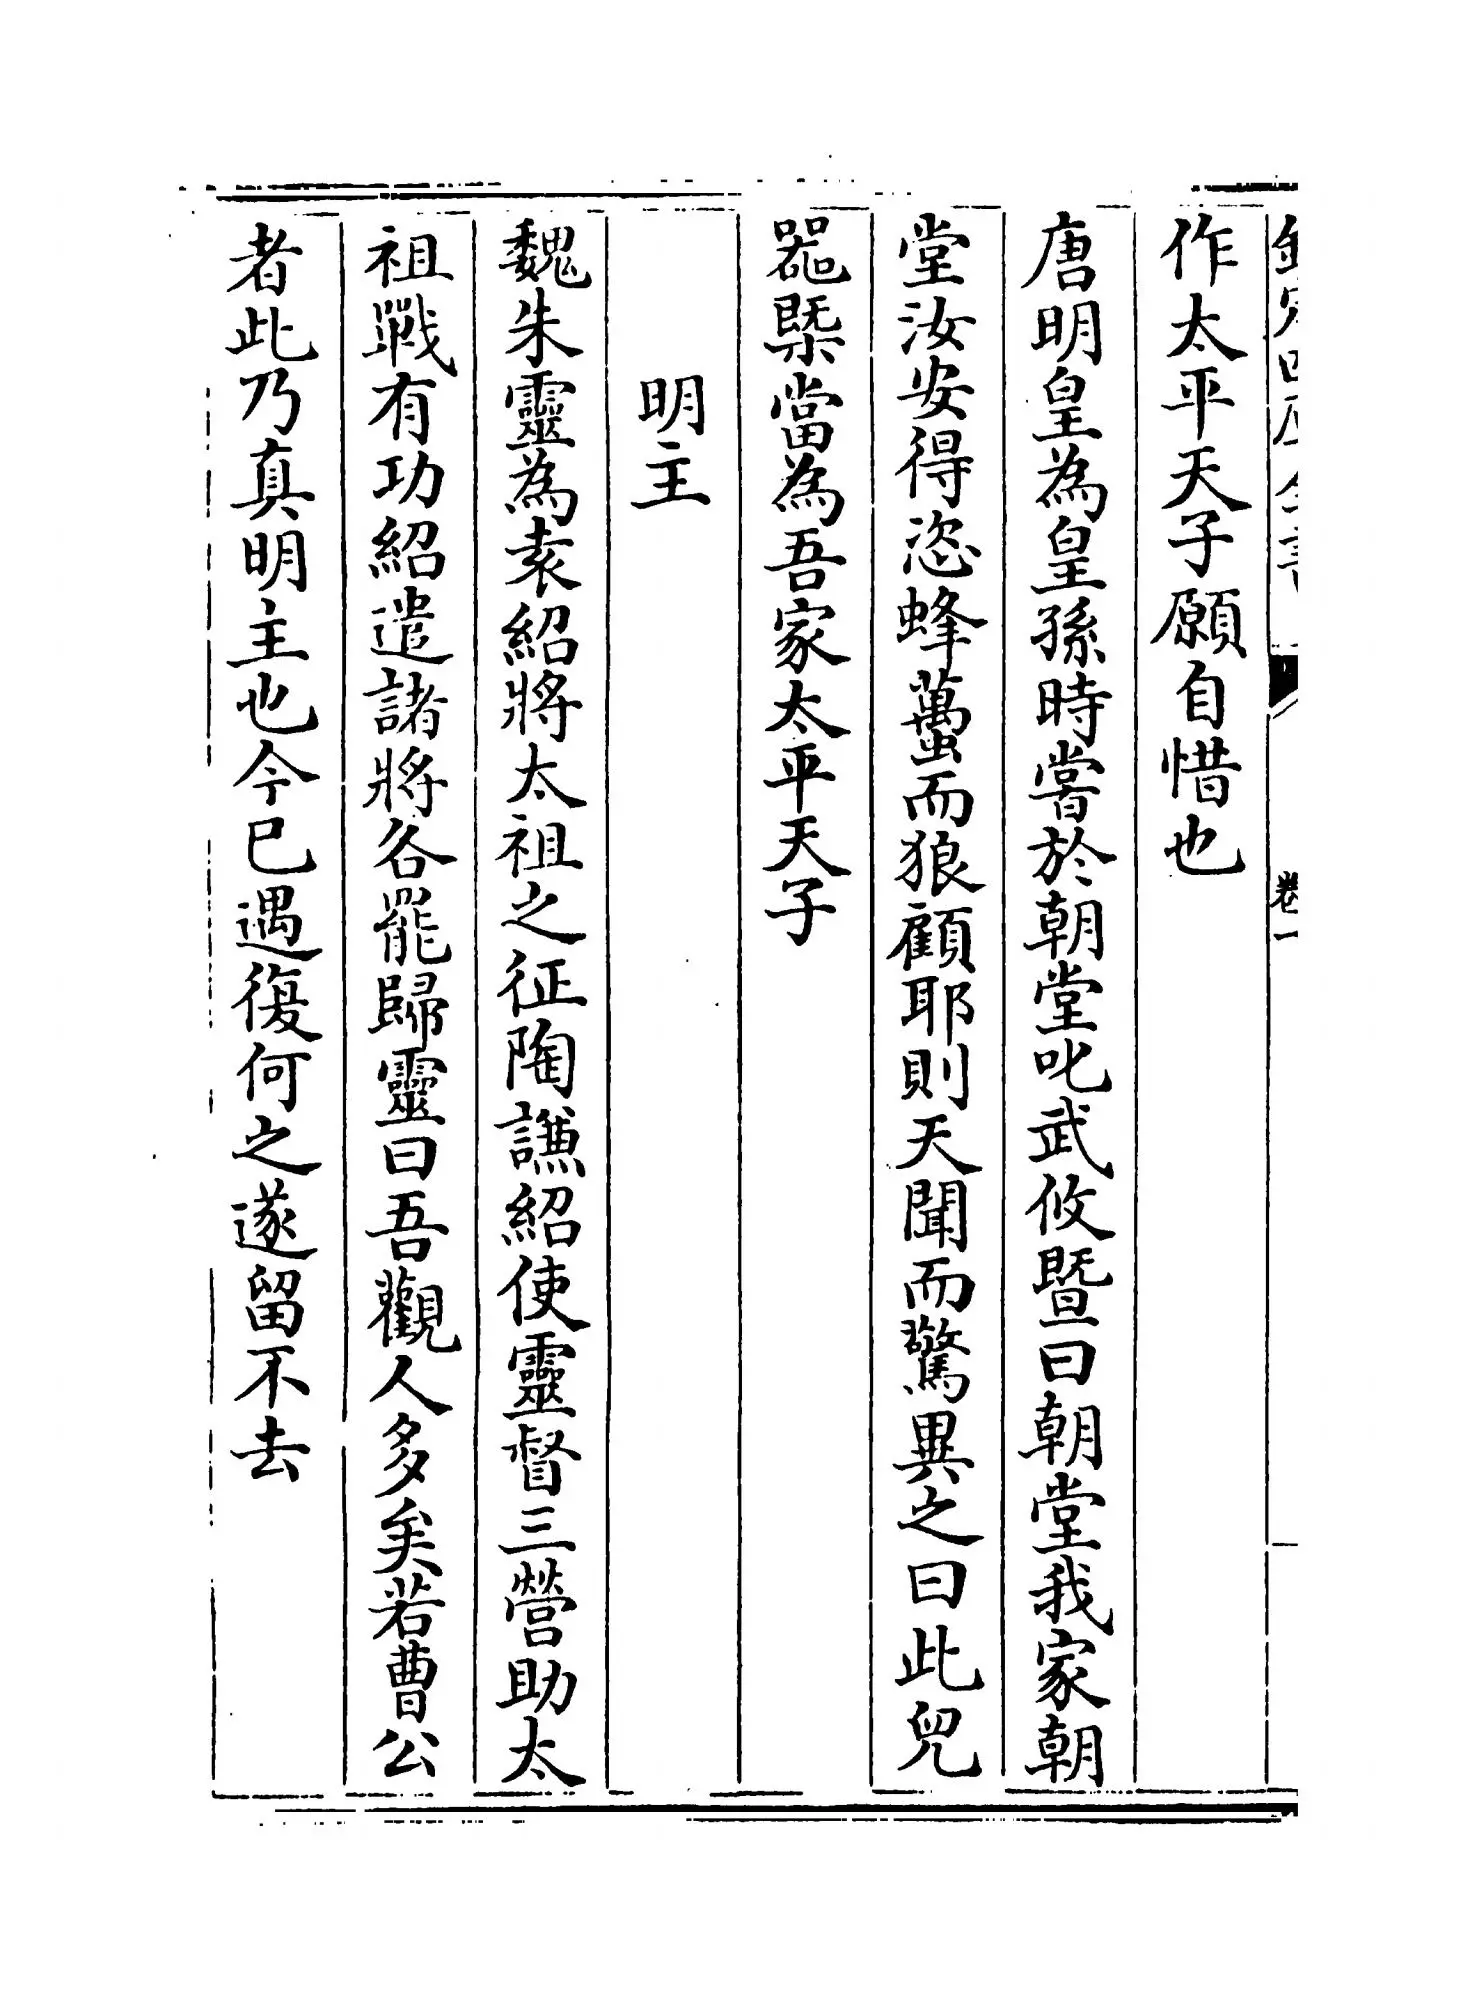 作太平天子願自惜也
唐明皇為皇孫時嘗於朝堂叱武攸暨曰朝堂我家朝
堂汝安得恣蜂蠆而狼顧耶則天聞而驚異之曰此兒
器槩當為吾家太平天子
明主
魏朱靈為袁紹將太祖之征陶謙紹使靈督三營助太
祖戰有功紹遣諸將各罷歸靈曰吾觀人多矣若曹公
者此乃真明主也今已遇復何之遂留不去
卷一